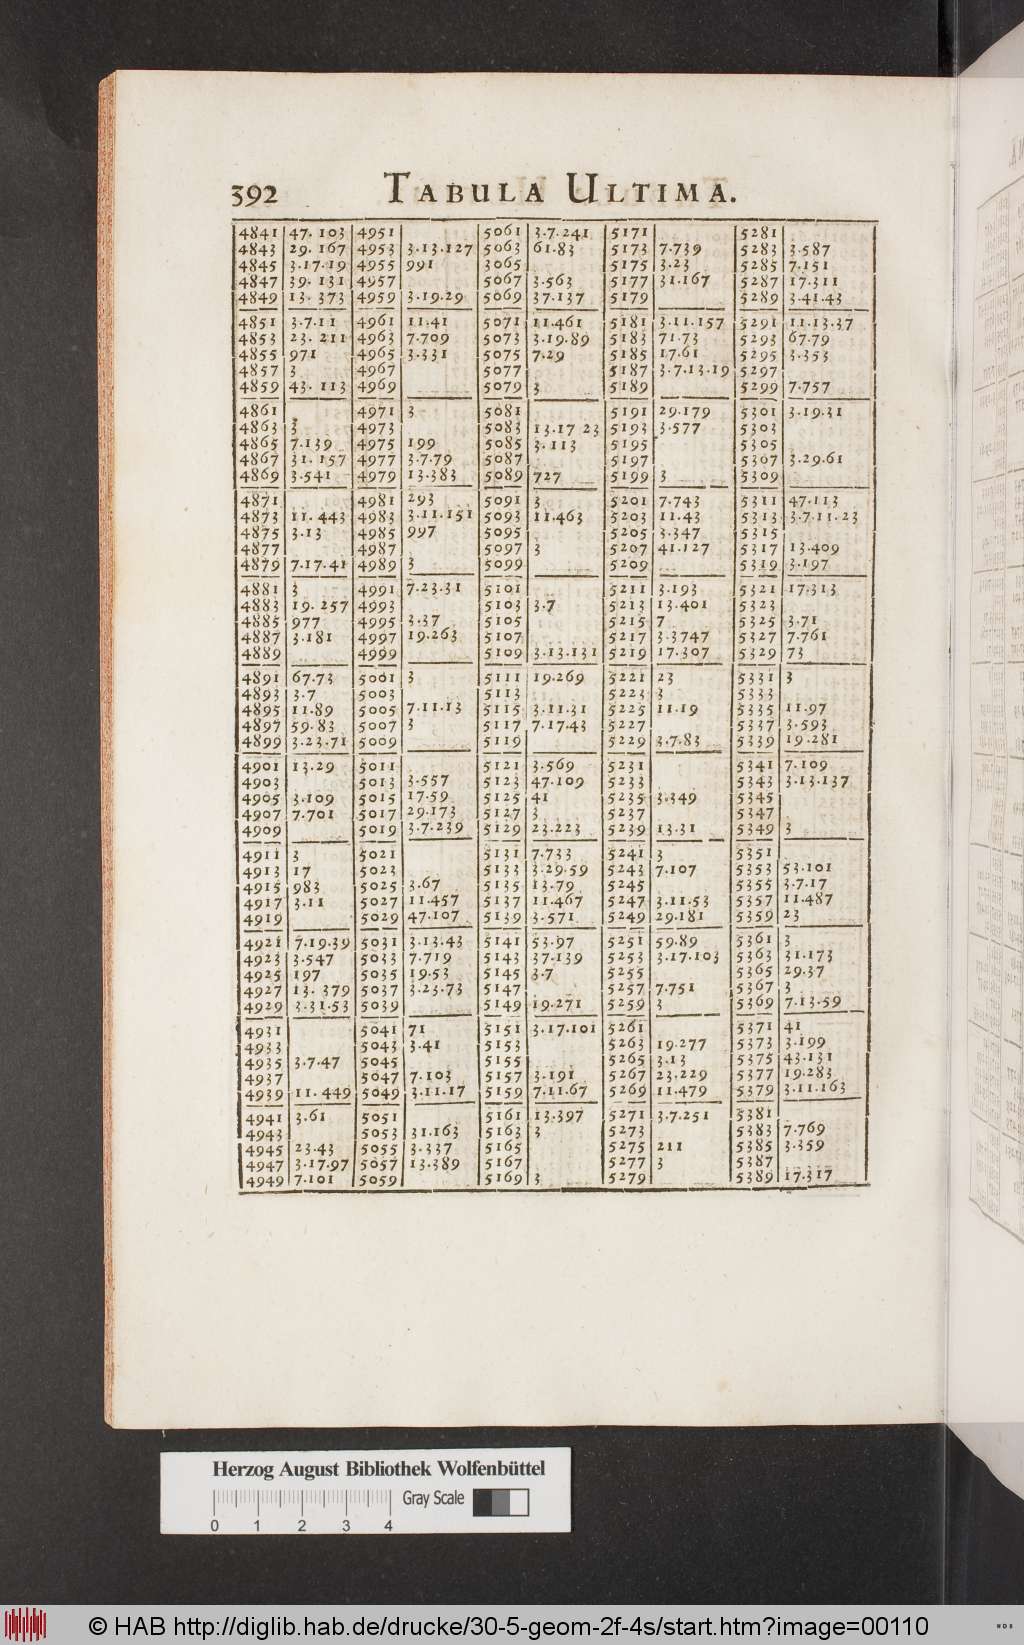 392 TABULA ULTIMA.
4841 47. 103 4951 5061 3.7.241 5171 5281
4843 29. 167 4953 3.13.127 5063 61.83 5173 7.739 5283 3.587
4845 3.17.19 4955 991 5065 5175 3.23 5285 7.151
4847 39. 131 4957 5067 3.563 5177 31.167 5287 17.311
4849 13. 373 4959 3.19.29 5069 37.137 5179 5289 3.41.43
4851 3.7.11 4961 11.41 5071 11.461 5181 3.11.157 5291 11.13.37
4853 23. 211 4963 7.709 5073 3.19.89 5183 71.73 5293 67.79
4855 971 4965 3.331 5075 7.29 5185 17.61 5295 3.353
4857 3 4967 5077 5187 3.7.13.19 5297
4859 43. 113 4969 5079 3 5189 5299 7.757
4861 4971 3 5081 5191 29.179 5301 3.19.31
4863 3 4973 5083 13.17 23 5193 3.577 5303
4865 7.139 4975 199 5085 3.113 5195 5305
4867 31. 157 4977 3.7.79 5087 5197 5307 3.29.61
4869 3.541 4979 13.383 5089 727 5199 3 5309
4871 4981 293 5091 3 5201 7.743 5311 47.113
4873 11. 443 4983 3.11.151 5093 11.463 5203 11.43 5313 3.7.11.23
4875 3.13 4985 997 5095 5205 3.347 5315
4877 4987 5097 3 5207 41.127 5317 13.409
4879 7.17.41 4989 3 5099 5209 5319 3.197
4881 3 4991 7.23.31 5101 5211 3.193 5321 17.313
4883 19. 257 4993 5103 3.7 5213 13.401 5323
4885 977 4995 3.37 5105 5215 7 5325 3.71
4887 3.181 4997 19.263 5107 5217 3.3747 5327 7.761
4889 4999 5109 3.13.131 5219 17.307 5329 73
4891 67.73 5001 3 5111 19.269 5221 23 5331 3
4893 3.7 5003 5113 5223 3 5333
4895 11.89 5005 7.11.13 5115 3.11.31 5225 11.19 5335 11.97
4897 59.83 5007 3 5117 7.17.43 5227 5337 3.593
4899 3.23.71 5009 5119 5229 3.7.83 5339 19.281
4901 13.29 5011 5121 3.569 5231 5341 7.109
4903 5013 3.557 5123 47.109 5233 5343 3.13.137
4905 3.109 5015 17.59 5125 41 5235 3.349 5345
4907 7.701 5017 29.173 5127 3 5237 5347
4909 5019 3.7.239 5129 23.223 5239 13.31 5349 3
4911 3 5021 5131 7.733 5241 3 5351
4913 17 5023 5133 3.29.59 5243 7.107 5353 53.101
4915 983 5025 3.67 5135 13.79 5245 5355 3.7.17
4917 3.11 5027 11.457 5137 11.467 5247 3.11.53 5357 11.487
4919 5029 47.107 5139 3.571 5249 29.181 5359 23
4921 7.19.39 5031 3.13.43 5141 53.97 5251 59.89 5361 3
4923 3.547 5033 7.719 5143 37.139 5253 3.17.103 5363 31.173
4925 197 5035 19.53 5145 3.7 5255 5365 29.37
4927 13. 379 5037 3.23.73 5147 5257 7.751 5367 3
4929 3.31.53 5039 5149 19.271 5259 3 5369 7.13.59
4931 5041 71 5151 3.17.101 5261 5371 41
4933 5043 3.41 5153 5263 19.277 5373 3.199
4935 3.7.47 5045 5155 5265 3.13 5375 43.131
4937 5047 7.103 5157 3.191 5267 23.229 5377 19.283
4939 11. 449 5049 3.11.17 5159 7.11.67 5269 11.479 5379 3.11.163
4941 3.61 5051 5161 13.397 5271 3.7.251 5381
4943 5053 31.163 5163 3 5273 5383 7.769
4945 23.43 5055 3.337 5165 5275 211 5385 3.359
4947 3.17.97 5057 13.389 5167 5277 3 5387
4949 7.101 5059 5169 3 5279 5389 17.317
Herzog August Bibliothek Wolfenbüttel
Gray Scale
0 1 2 3 4
© HAB http://diglib.hab.de/drucke/30-5-geom-2f-4s/start.htm?image=00110